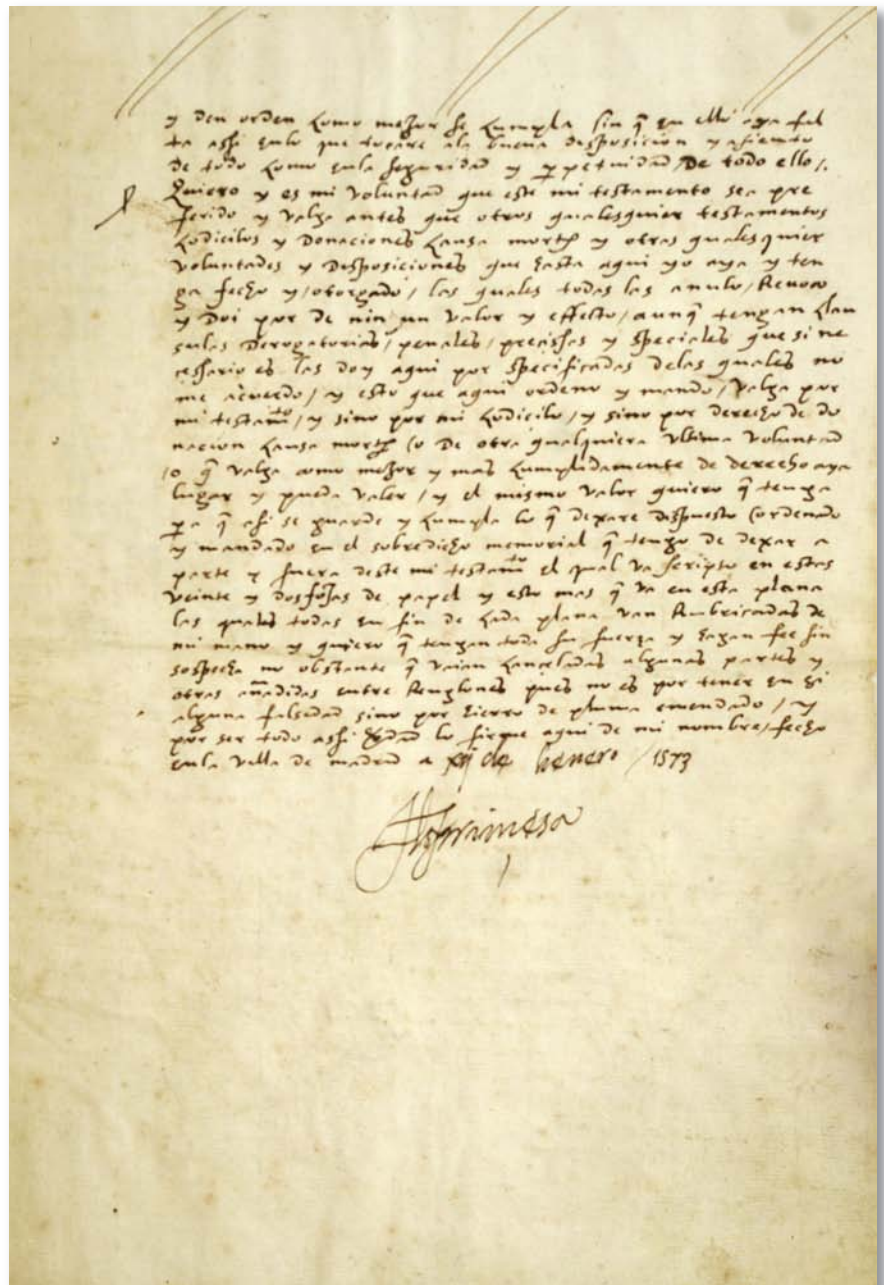 y den orden como mejor se cumpla sin q̃ en ello aya fal
ta assi enlo que tocare ala buena disposicion y assiento
de todo como enla seguridad y ꝑpetuidad / De todo ello /.
Quiero y es mi voluntad que este mi testamento sea pre
ferido y valga antes que otros qualesquier testamentos
Codicilos y Donaciones causa mortis y otras qualesquier
voluntades y Disposiciones que hasta aqui yo aya y ten
ga fecho y / otorgado / las quales todas las anulo / Revoco
y Doi por de nin un valor y effecto / aunq̃ tengan clau
sulas Derogatorias / penales / precissas y speciales que si ne
cessario es las doy aqui por specificadas delas quales no
me acuerdo / y esto que aqui ordeno y mando / valga por
mi testamto / y sino por mi codicilo / y sino por derecho de do
nacion causa mortis (o De otra qualquiera ultima voluntad
/o q̃ valga como mejor y mas cumplidamente de derecho aya
lugar y pueda valer / y el mismo valor quiero q̃ tenga
pa q̃ asi se guarde y cumpla lo q̃ dexare dispuesto (ordenado
y mandado en el sobredicho memorial q̃ tengo de dexar a
parte y fuera deste mi testamto el qual va scripto en estas
veinte y dos fojas de papel y esto mas q̃ va en esta plana
las quales todas en fin de cada plana van Rubricadas de
mi mano y quiero q̃ tengan toda su fuerza y hagan fee sin
sospecha no obstante q̃ vaian canceladas algunas partes y
otras añadidas entre Renglones pues no es por tener en si
alguna falsedad sino por hierro de pluma emendado / y
por ser todo assi verdad lo firme aqui de mi nombre / fecho
enla villa de madrid a xij de henero / 1573
La princesa